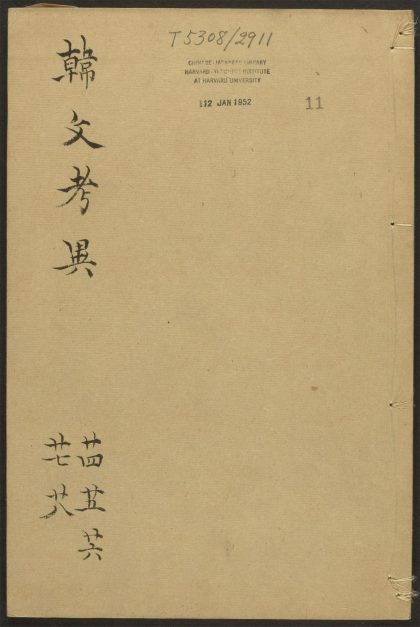 T5308/2911
CHINESE-JAPANESE LIBRARY
HARVARD-YENCHING INSTITUTE
AT HARVARD UNIVERSITY
JAN 1952
11
韓文考異
廿四 廿五 廿六
廿七 廿八